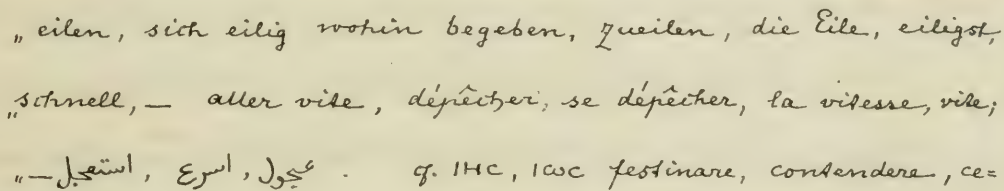 „eilen, sich eilig wohin begeben, zueilen, die Eile, eiligst,
„schnell, — aller vite, dépêcher, se dépêcher, la vitesse, vite;
„— استعجل, اسرع, عجول . cf. ⲓⲏⲥ, ⲓⲱⲥ festinare, contendere, ce=